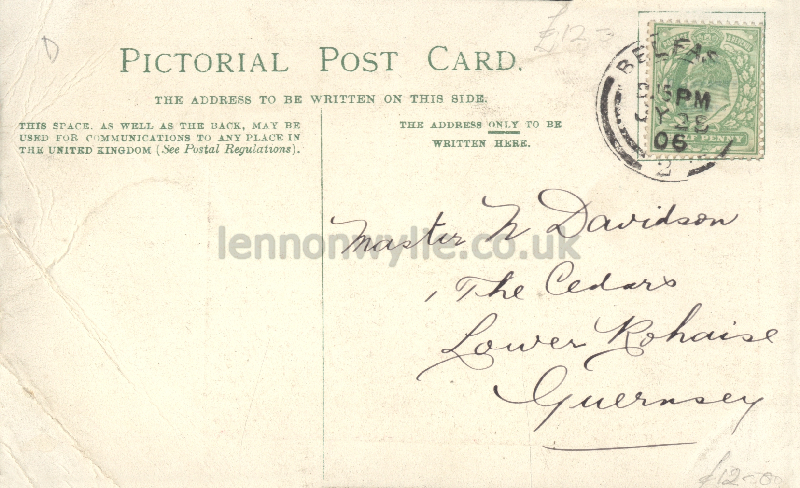 D
£12
PICTORIAL POST CARD.
THE ADDRESS TO BE WRITTEN ON THIS SIDE.
THIS SPACE, AS WELL AS THE BACK, MAY BE
USED FOR COMMUNICATIONS TO ANY PLACE IN
THE UNITED KINGDOM (See Postal Regulations).
THE ADDRESS ONLY TO BE
WRITTEN HERE.
BELFAS
15 PM
Y 28
06
lennonwylie.co.uk
Master N Davidson
The Cedars
Lower Rohaise
Guernsey
£12-0